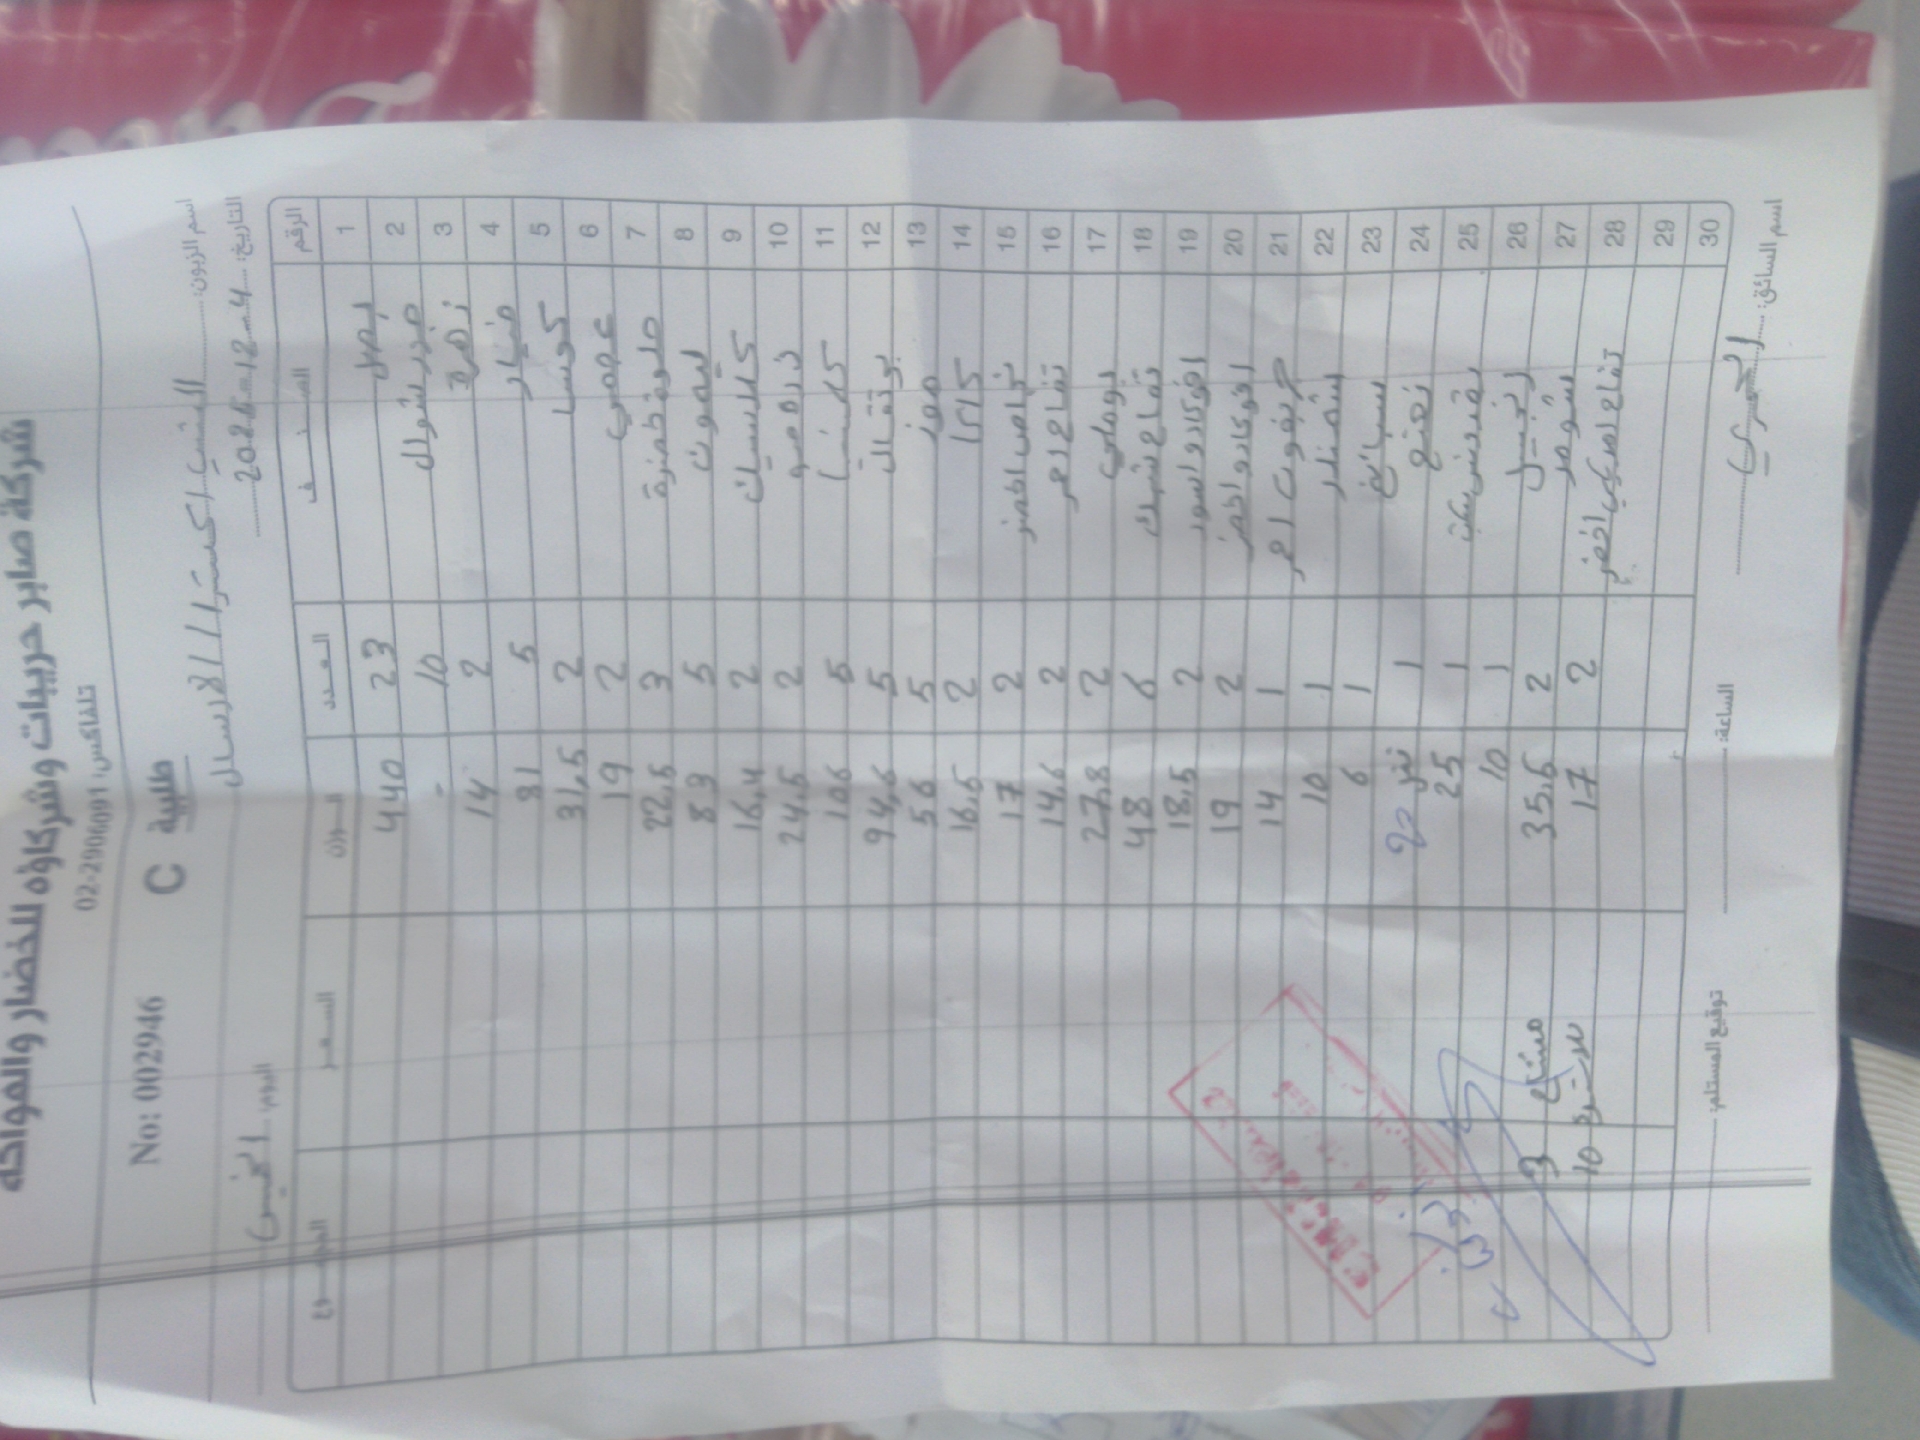 شركة صابر حربيات وشركاؤه للخضار والفواكه
تلفاكس: 02-2906091
No: 002946 C طلبية
اسم الزبون: اكسترا الارسال
التاريخ: 2025-12-4 اليوم: الخميس
الرقم الصنف العدد الوزن السعر المجموع
1 بصل 23 440
2 جزر شوال 10 -
3 زهرة 2 14
4 خيار 5 81
5 كوسا 2 31,5
6 2 19
7 حلوة خمزة 3 22,5
8 ليمون 5 83
9 كلاسيك 2 16,4
10 2 24,5
11 كلمنتينا 5 106
12 برتقال 5 94,6
13 موز 5 56
14 كاكا 2 16,5
15 اخضر 2 17
16 تفاح احمر 2 14,6
17 بوملي 2 27,8
18 تفاح 6 48
19 افوكادو اسود 2 18,5
20 افوكادو اخضر 2 19
21 احمر 1 14
22 شمندر 1 10
23 سبانخ 1 6
24 نعنع 1 20
25 بقدونس 1 25
26 1 10
27 2 35,5 3
28 تفاح اخضر 2 17 10
29
30
اسم السائق: الساعة: توقيع المستلم: